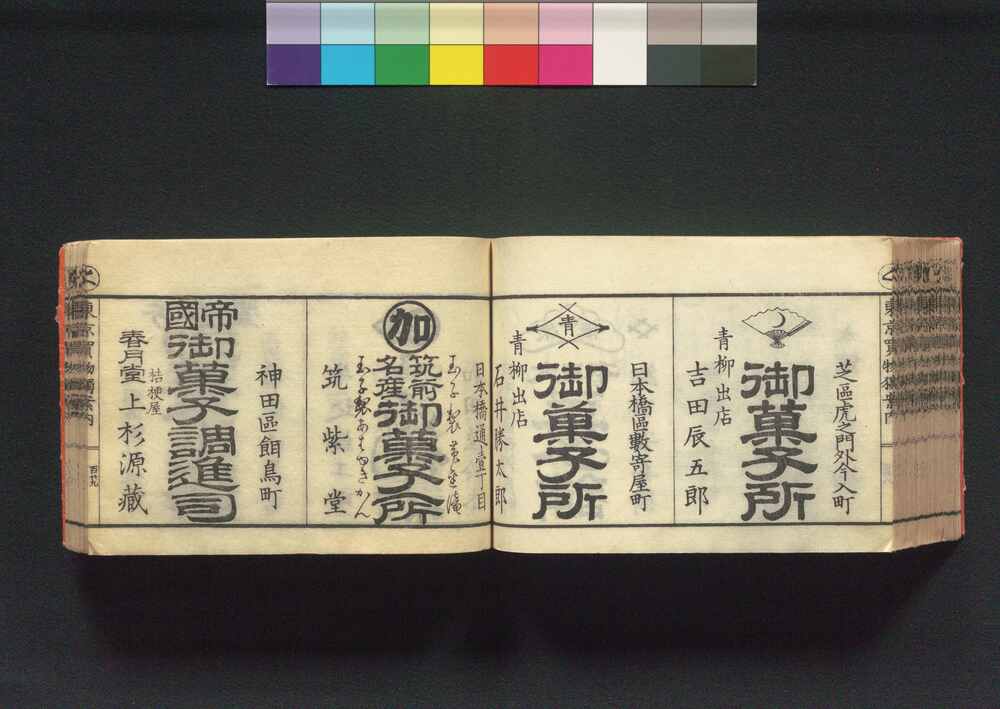 芝區虎之門外今入町
御菓子所
青柳出店
吉田辰五郎
日本橋區數寄屋町
青
御菓子所
青柳出店
石井勝太郎
日本橋通壹丁目
加
筑前
名産
御菓子所
筑紫堂
神田區餌鳥町
帝國
御菓子調進司
桔梗屋
春月堂
上杉源藏
東京買物獨案内
百九